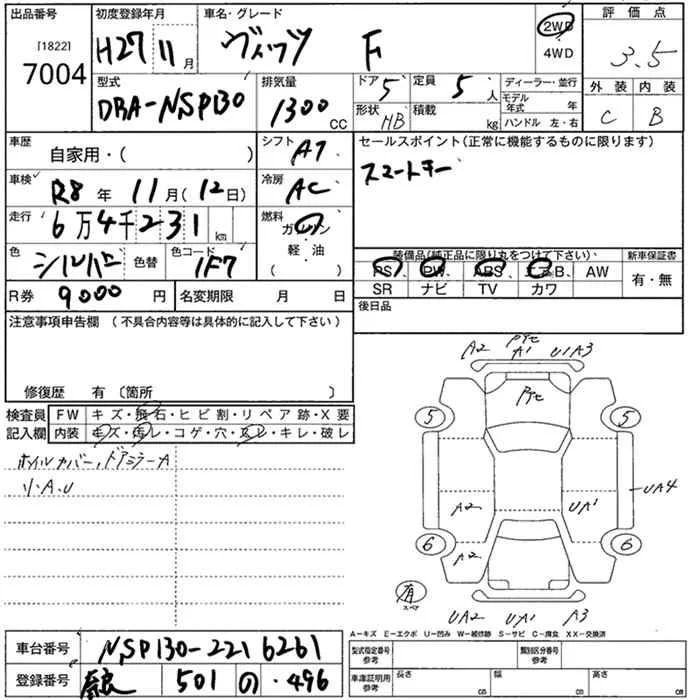 出品番号
[1822]
7004
初度登録年月
H27 11 月
車名・グレード
ヴィッツ F
2WD
4WD
評価点
3.5
型式
DBA-NSP130
排気量
1300 CC
ドア 5
定員 5 人
形状 HB
積載 kg
ディーラー・並行
モデル年式 年
ハンドル 左・右
外装 内装
C B
車歴
自家用・( )
シフト AT
セールスポイント(正常に機能するものに限ります)
スマートキー
車検
R8 年 11 月(12 日)
冷房 AC
走行
6 万 4 千 2 3 1 km
燃料
ガソリン
軽・油
( )
色
シルバー
色替
色コード
1F7
装備品(純正品に限り丸をつけて下さい)
新車保証書
PS PW ABS エアB AW
有・無
SR ナビ TV カワ
R券 9000 円
名変期限 月 日
後日品
注意事項申告欄 (不具合内容等は具体的に記入して下さい)
修復歴 有 〔箇所 〕
検査員記入欄
FW キズ・飛石・ヒビ割・リペア跡・X要
内装 キズ・汚レ・コゲ・穴・スレ・キレ・破レ
ホイルカバー、ドアミラーA
小A、U
A2 A1 U1A3
5 5
UA4
A2 UA1
6 6
A2
有
スペア
UA2 UA1 A3
A−キズ E−エクボ U−凹み W−補修跡 S−サビ C−腐食 XX−交換済
車台番号 NSP130-2216261
型式指定番号 参考
類別区分番号 参考
登録番号 奈良 501 の ・496
車庫証明用 参考
長さ cm
幅 cm
高さ cm